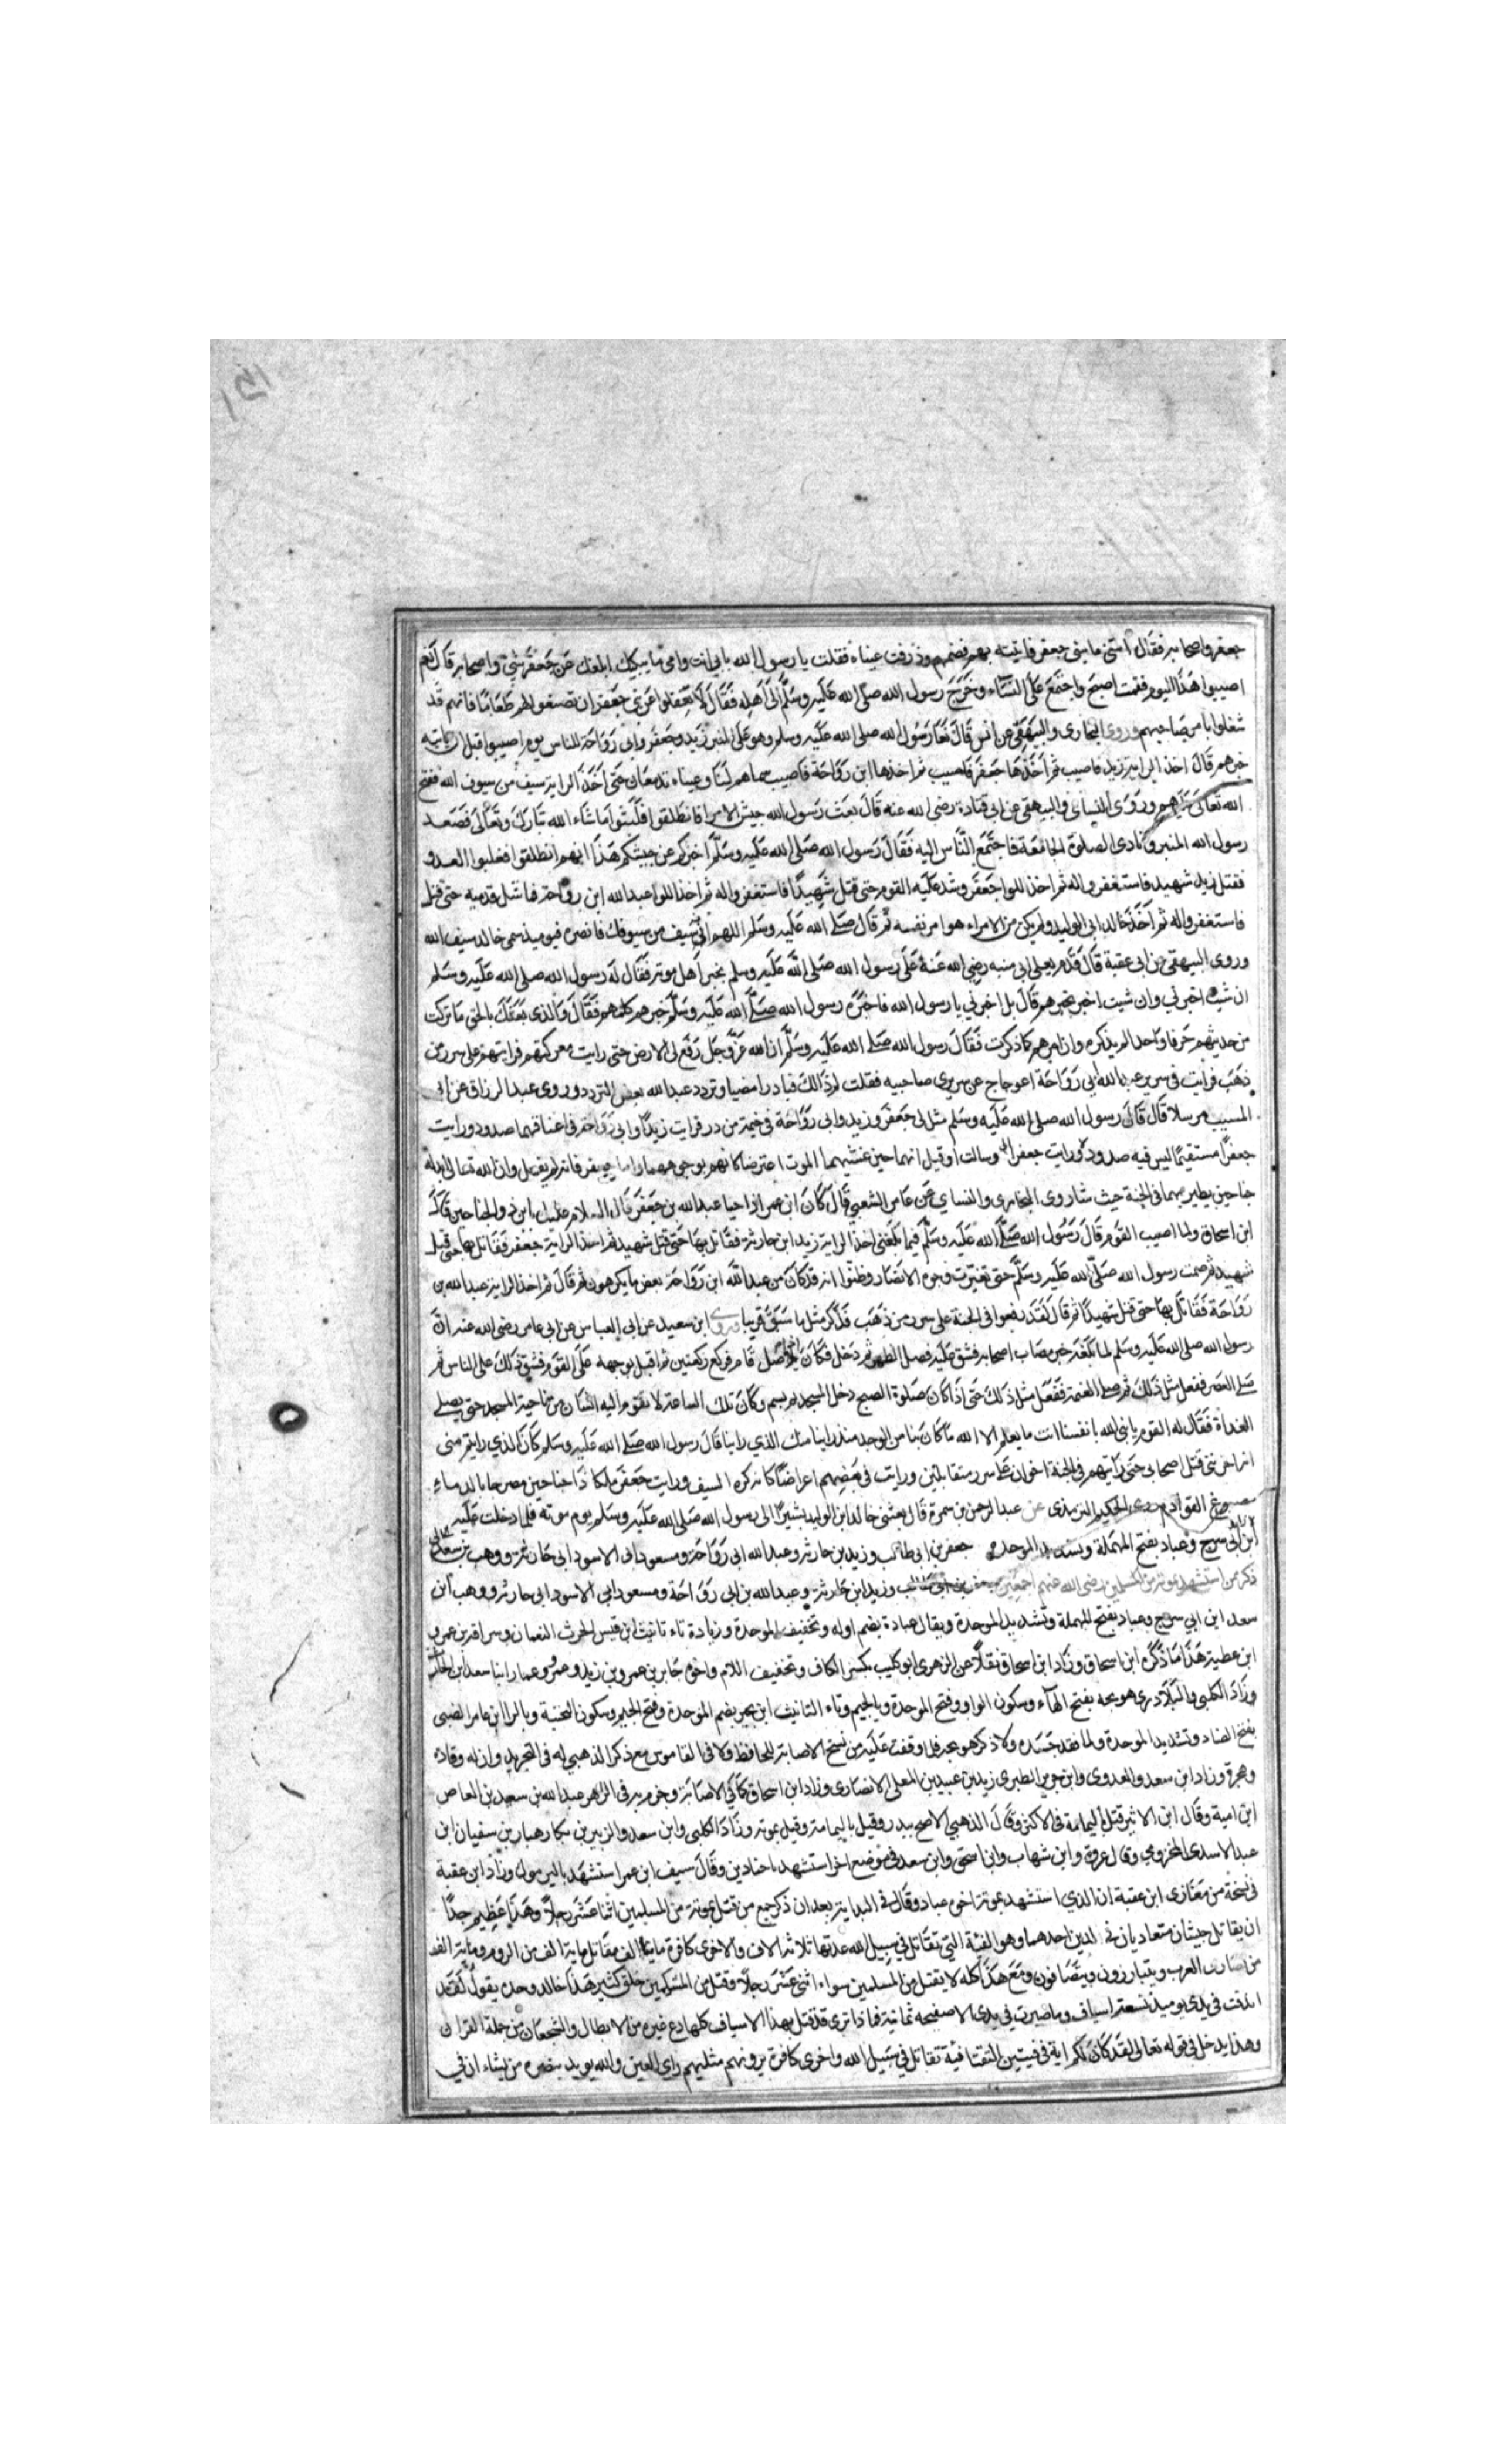 جعفر واصحابه فقال امتى ما بنى جعفر فاتيته بهم فضمهم وذرفت عيناه فقلت يا رسول الله بابى انت وامى ما يبكيك ابلغك عن جعفر شئ واصحابه قال نعم
اصيبوا هذا اليوم فقمت اصبح واجتمع على النساء وخرج رسول الله صلى الله عليه وسلم الى اهله فقال لا تغفلوا عن بنى جعفر ان تصنعوا لهم طعاما فانهم قد
شغلوا بامر صاحبهم وروى البخارى والبيهقى عن انس قال نعا رسول الله صلى الله عليه وسلم وهو على المنبر زيد وجعفر وابى رواحة للناس يوم اصيبوا قبل ان ياتيه
خبرهم قال اخذ الراية زيد فاصيب ثم اخذها جعفر فاصيب ثم اخذها ابن رواحة فاصيب وعيناه تدمعان حتى اخذ الراية سيف من سيوف الله ففتح
الله تعالى عليهم وروى النسائى والبيهقى عن ابى قتادة رضى الله عنه قال بعث رسول الله جيش الامرا فانطلقوا فلبثوا ما شاء الله تبارك وتعالى فصعد
رسول الله المنبر ونادى الصلوة الجامعة فاجتمع الناس اليه فقال رسول الله صلى الله عليه وسلم اخبركم عن جيشكم هذا انهم انطلقوا فغلبوا العدو
فقتل زيد شهيد فاستغفر واله ثم اخذ اللوا جعفر وشد عليه القوم حتى قتل شهيدا فاستغفر واله ثم اخذ اللوا عبد الله ابن رواحة فاشل قدميه حتى قتل
فاستغفر واله ثم اخذ خالد ابى الوليد ولم يكن من الامراء هو امر نفسه ثم قال صلى الله عليه وسلم اللهم انه سيف من سيوفك فانصره فيوميذ سمى خالد سيف الله
وروى البيهقى من ابى عقبة قال قدم يعلى ابى منبه رضى الله عنه على رسول الله صلى الله عليه وسلم بخبر اهل موته فقال له رسول الله صلى الله عليه وسلم
ان شيت اخبرنى وان شيت اخبر بخبرهم قال بل اخبرنى يا رسول الله فاخبره رسول الله صلى الله عليه وسلم خبرهم كلهم فقال والذى بعثك بالحق ما تركت
من حديثهم حرفا واحدا لم يذكره وان امرهم كما ذكرت فقال رسول الله صلى الله عليه وسلم ان الله عز وجل رفع لى الارض حتى رايت معركتهم فرايتهم على سرر من
ذهب فرايت فى سرير عبد الله ابى رواحة اعوجاج عن سريرى صاحبيه فقلت لم ذالك فبادرا مضيا وتردد عبد الله بعض التردد وروى عبد الرزاق عن ابى
المسيب مرسلا قال قال رسول الله صلى الله عليه وسلم مثل لى جعفر وزيد وابى رواحة فى خيمة من در فرايت زيدا وابى رواحة فى اعناقهما صدود ورايت
جعفرا مستقيما ليس فيه صدود ورايت جعفر وسالت او قيل انهما حين غشيهما الموت اعترضا كانهم بوجوههما واما جعفر فانه لم يفعل وان الله تعالى ابدله
جناحين يطير بهما فى الجنة حيث شا روى البخارى والنساى عن عامر الشعبى قال كان ابن عمر اذا حيا عبد الله بن جعفر قال السلام عليك يا ابن ذو الجناحين قال
ابن اسحاق ولما اصيب القوم قال رسول الله صلى الله عليه وسلم فيما بلغنى اخذ الراية زيد ابن حارثة فقاتل بها حتى قتل شهيد ثم اخذ الراية جعفر فقاتل بها حتى قتل
شهيد ثم صمت رسول الله صلى الله عليه وسلم حتى تغيرت وجوه الانصار وظنوا انه قد كان من عبد الله ابن رواحة بعض ما يكرهون ثم قال ثم اخذ الراية عبد الله بن
رواحة فقاتل بها حتى قتل شهيدا ثم قال لقد رفعوا فى الجنة على سرر من ذهب فذكر مثل ما سبق قريبا وروى ابن سعيد عن ابى العباس عن ابى عامر رضى الله عنه ان
رسول الله صلى الله عليه وسلم لما بلغه خبر مصاب اصحابه فشق عليه فصل الظهر ثم دخل فكان اذا صل قام فركع ركعتين ثم اقبل بوجهه على القوم فشق ذلك على الناس ثم
صلى العصر ففعل مثل ذلك ثم صلى العتمة ففعل مثل ذلك حتى اذا كان صلوة الصبح دخل المسجد ثم بسم وكان تلك الساعة لا يقوم اليه انسان من ناحية المسجد حتى يصلى
الغداة فقال له القوم يا نبى الله بانفسنا انت ما يعلم الا الله ما كان بنا من الوجد منذ راينا منك الذي راينا قال رسول الله صلى الله عليه وسلم كان الذي رايتم منى
انه احزننى قتل اصحابى حتى رايتهم فى الجنة اخوان على سرر متقابلين ورايت فى بعضهم اعراضا كانه كره السيف ورايت جعفر ملكا ذا جناحين مضرجا بالدماء
مصبوغ القوادم وروى الحكيم الترمذى عن عبد الرحمن بن سمرة قال بعثنى خالد ابن الوليد بشيرا الى رسول الله صلى الله عليه وسلم يوم موته فلما دخلت عليه
ابن ابى سرح وعباد بفتح المهملة وتشديد الموحدة جعفر بن ابى طالب وزيد بن حارثه وعبد الله ابى رواحة ومسعود ابى الاسود ابى حارثة ووهب بن سعد
ذكر من استشهد بموته من المسلمين رضى الله عنهم اجمعين جعفر بن ابى طالب وزيد ابن حارثة وعبد الله بن ابى رواحة ومسعود ابى الاسود ابى حارثه ووهب ابن
سعد ابن ابي سرح وعباد بفتح المهملة وتشديد الموحدة ويقال عبادة بضم اوله وتخفيف الموحدة وزيادة تاء تانيث ابن قيس الحرث النعمان وسراقه بن عمرو
ابن عطية هذا ما ذكره ابن اسحاق وزاد ابن اسحاق نقلا عن الزهرى ابو كليب بكسر الكاف وتخفيف اللام واخوه جابر بن عمرو بن زيد وعمرو وعمار ابنا سعد ابن الحارث
وزاد الكلبى والبلاذرى هو بجه بفتح الهاء وسكون الواو وفتح الموحدة وبالجيم وتاء التانيث ابن بجير بضم الموحدة وفتح الجيم وسكون التحتية وبالرا ابن عامر الضبى
بفتح الضاد وتشديد الموحدة ولما فقد جسده ولا ذكر هو بجه فيما وقفت عليه من نسخ الاصابة للحافظ ولا فى القاموس مع ذكر الذهبى له فى التجريد وانه له وفادة
وهجرة وزاد ابن سعد والعدوى وابن جرير الطبرى زيد بن عبيد بن المعلى الانصارى وزاد ابن اسحاق كما فى الاصابة وجزم به فى الزهر عبد الله بن سعيد بن العاص
ابن امية وقال ابن الاثير قتل باليمامة فى الاكثر وقال الذهبى الاصح ببدر وقيل باليمامة وقيل بموته وزاد الكلبى وابن سعد والزبير بن بكار هبار بن سفيان ابن
عبد الاسدى المخزومى وقال عروة وابن شهاب وابن اسحق وابن سعد فى موضع اخر استشهد باجنادين وقال سيف ابن عمر استشهد باليرموك وزاد ابن عقبة
فى نسخة من مغازى ابن عقبة ان الذي استشهد بموتة اخوه عباد وقال فى البداية بعد ان ذكر جمع من قتل بموتة من المسلمين اثنا عشر رجلا وهذا عظيم جدا
ان يقاتل جيشان متعاديان فى الدين احدهما وهو الفئة التى تقاتل فى سبيل الله عدتها ثلاثة الاف والاخرى كافرة مايتا الف مقاتل ماية الف من الروم وماية الف
من نصارى العرب ويتبارزون ويتصافون ومع هذا كله لا يقتل من المسلمين سواء اثنى عشر رجلا وقتل من المشركين خلق كثير هذا خالد وحده يقول لقد
اندقت فى يدى يوميذ تسعة اسياف وما صبرت فى يدى الا صفيحه يمانية فماذا ترى قد قتل بهذا الاسياف كلها دع غيره من الابطال والشجعان من حملة القران
وهذا يدخل فى قوله تعالى لقد كان لكم اية فى فيتين التقتا فية تقاتل فى سبيل الله واخرى كافرة يرونهم مثليهم راى العين والله يويد بنصره من يشاء ان فى